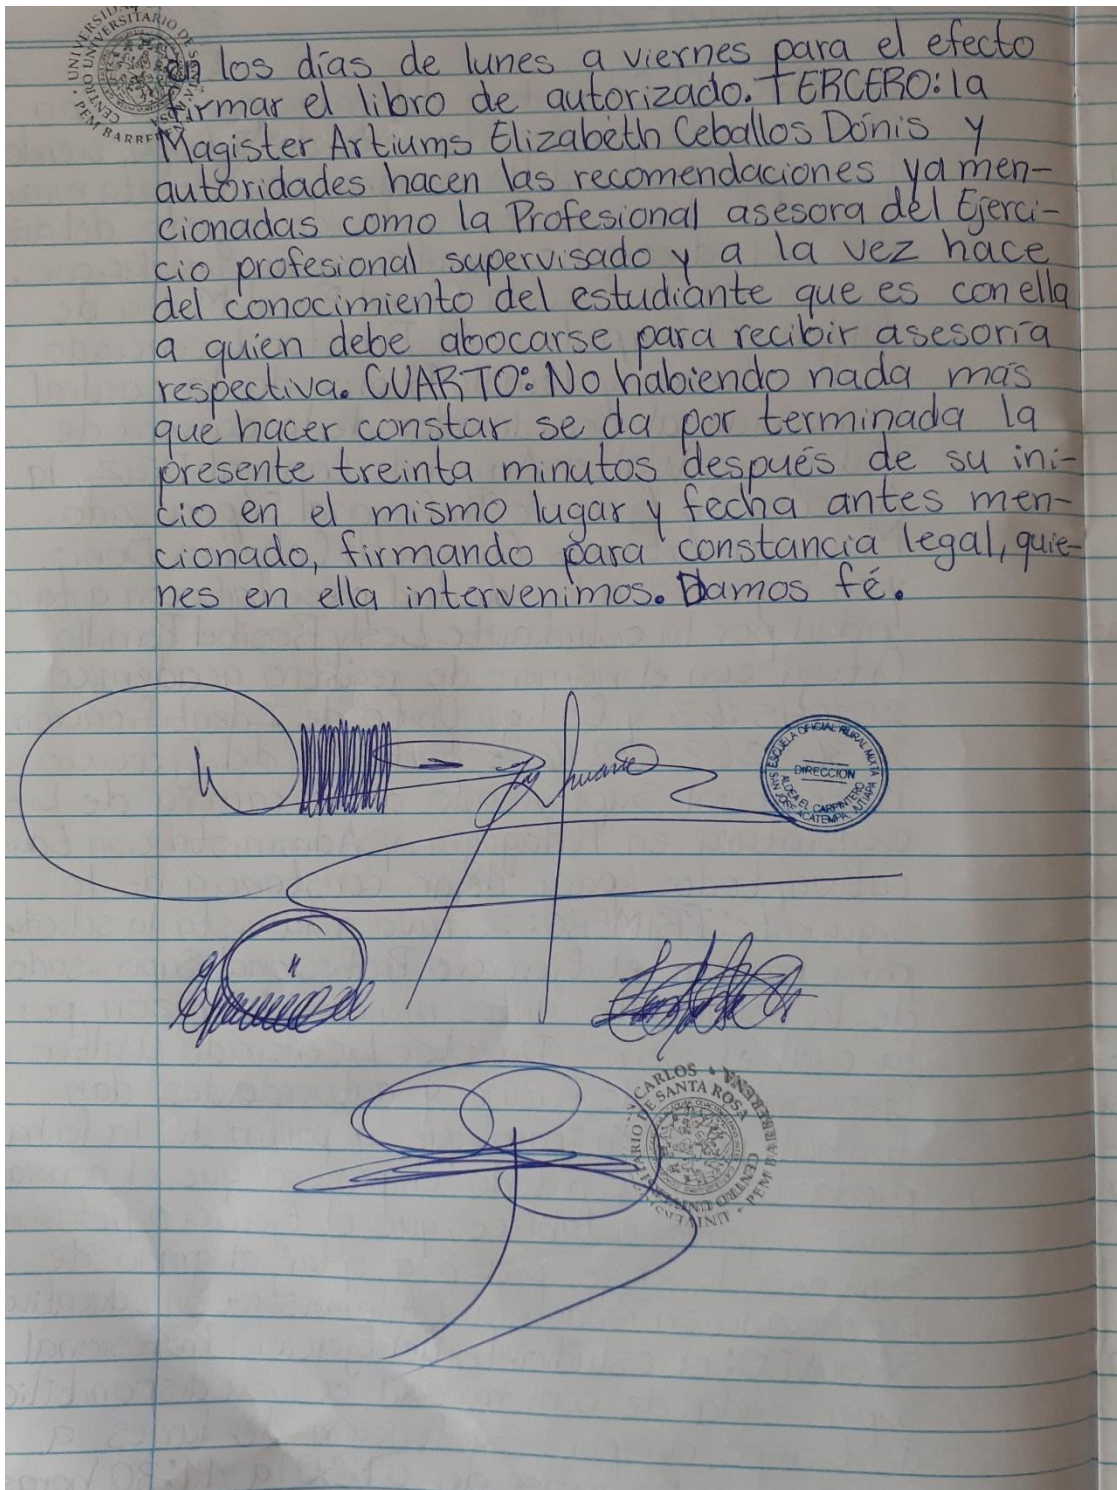 en los días de lunes a viernes para el efecto
firmar el libro de autorizado. TERCERO: la
Magister Artiums Elizabeth Ceballos Donis y
autoridades hacen las recomendaciones ya men-
cionadas como la Profesional asesora del Ejerci-
cio profesional supervisado y a la vez hace
del conocimiento del estudiante que es con ella
a quien debe abocarse para recibir asesoría
respectiva. CUARTO: No habiendo nada más
que hacer constar se da por terminada la
presente treinta minutos después de su ini-
cio en el mismo lugar y fecha antes men-
cionado, firmando para constancia legal, quie-
nes en ella intervenimos. Damos fé.
ESCUELA OFICIAL RURAL MIXTA
DIRECCION
ALDEA EL CARPINTERO
SAN JOSE ACATEMPA, JUTIAPA
CARLOS
DE SANTA ROSA
CENTRO
PEM BARRERENA